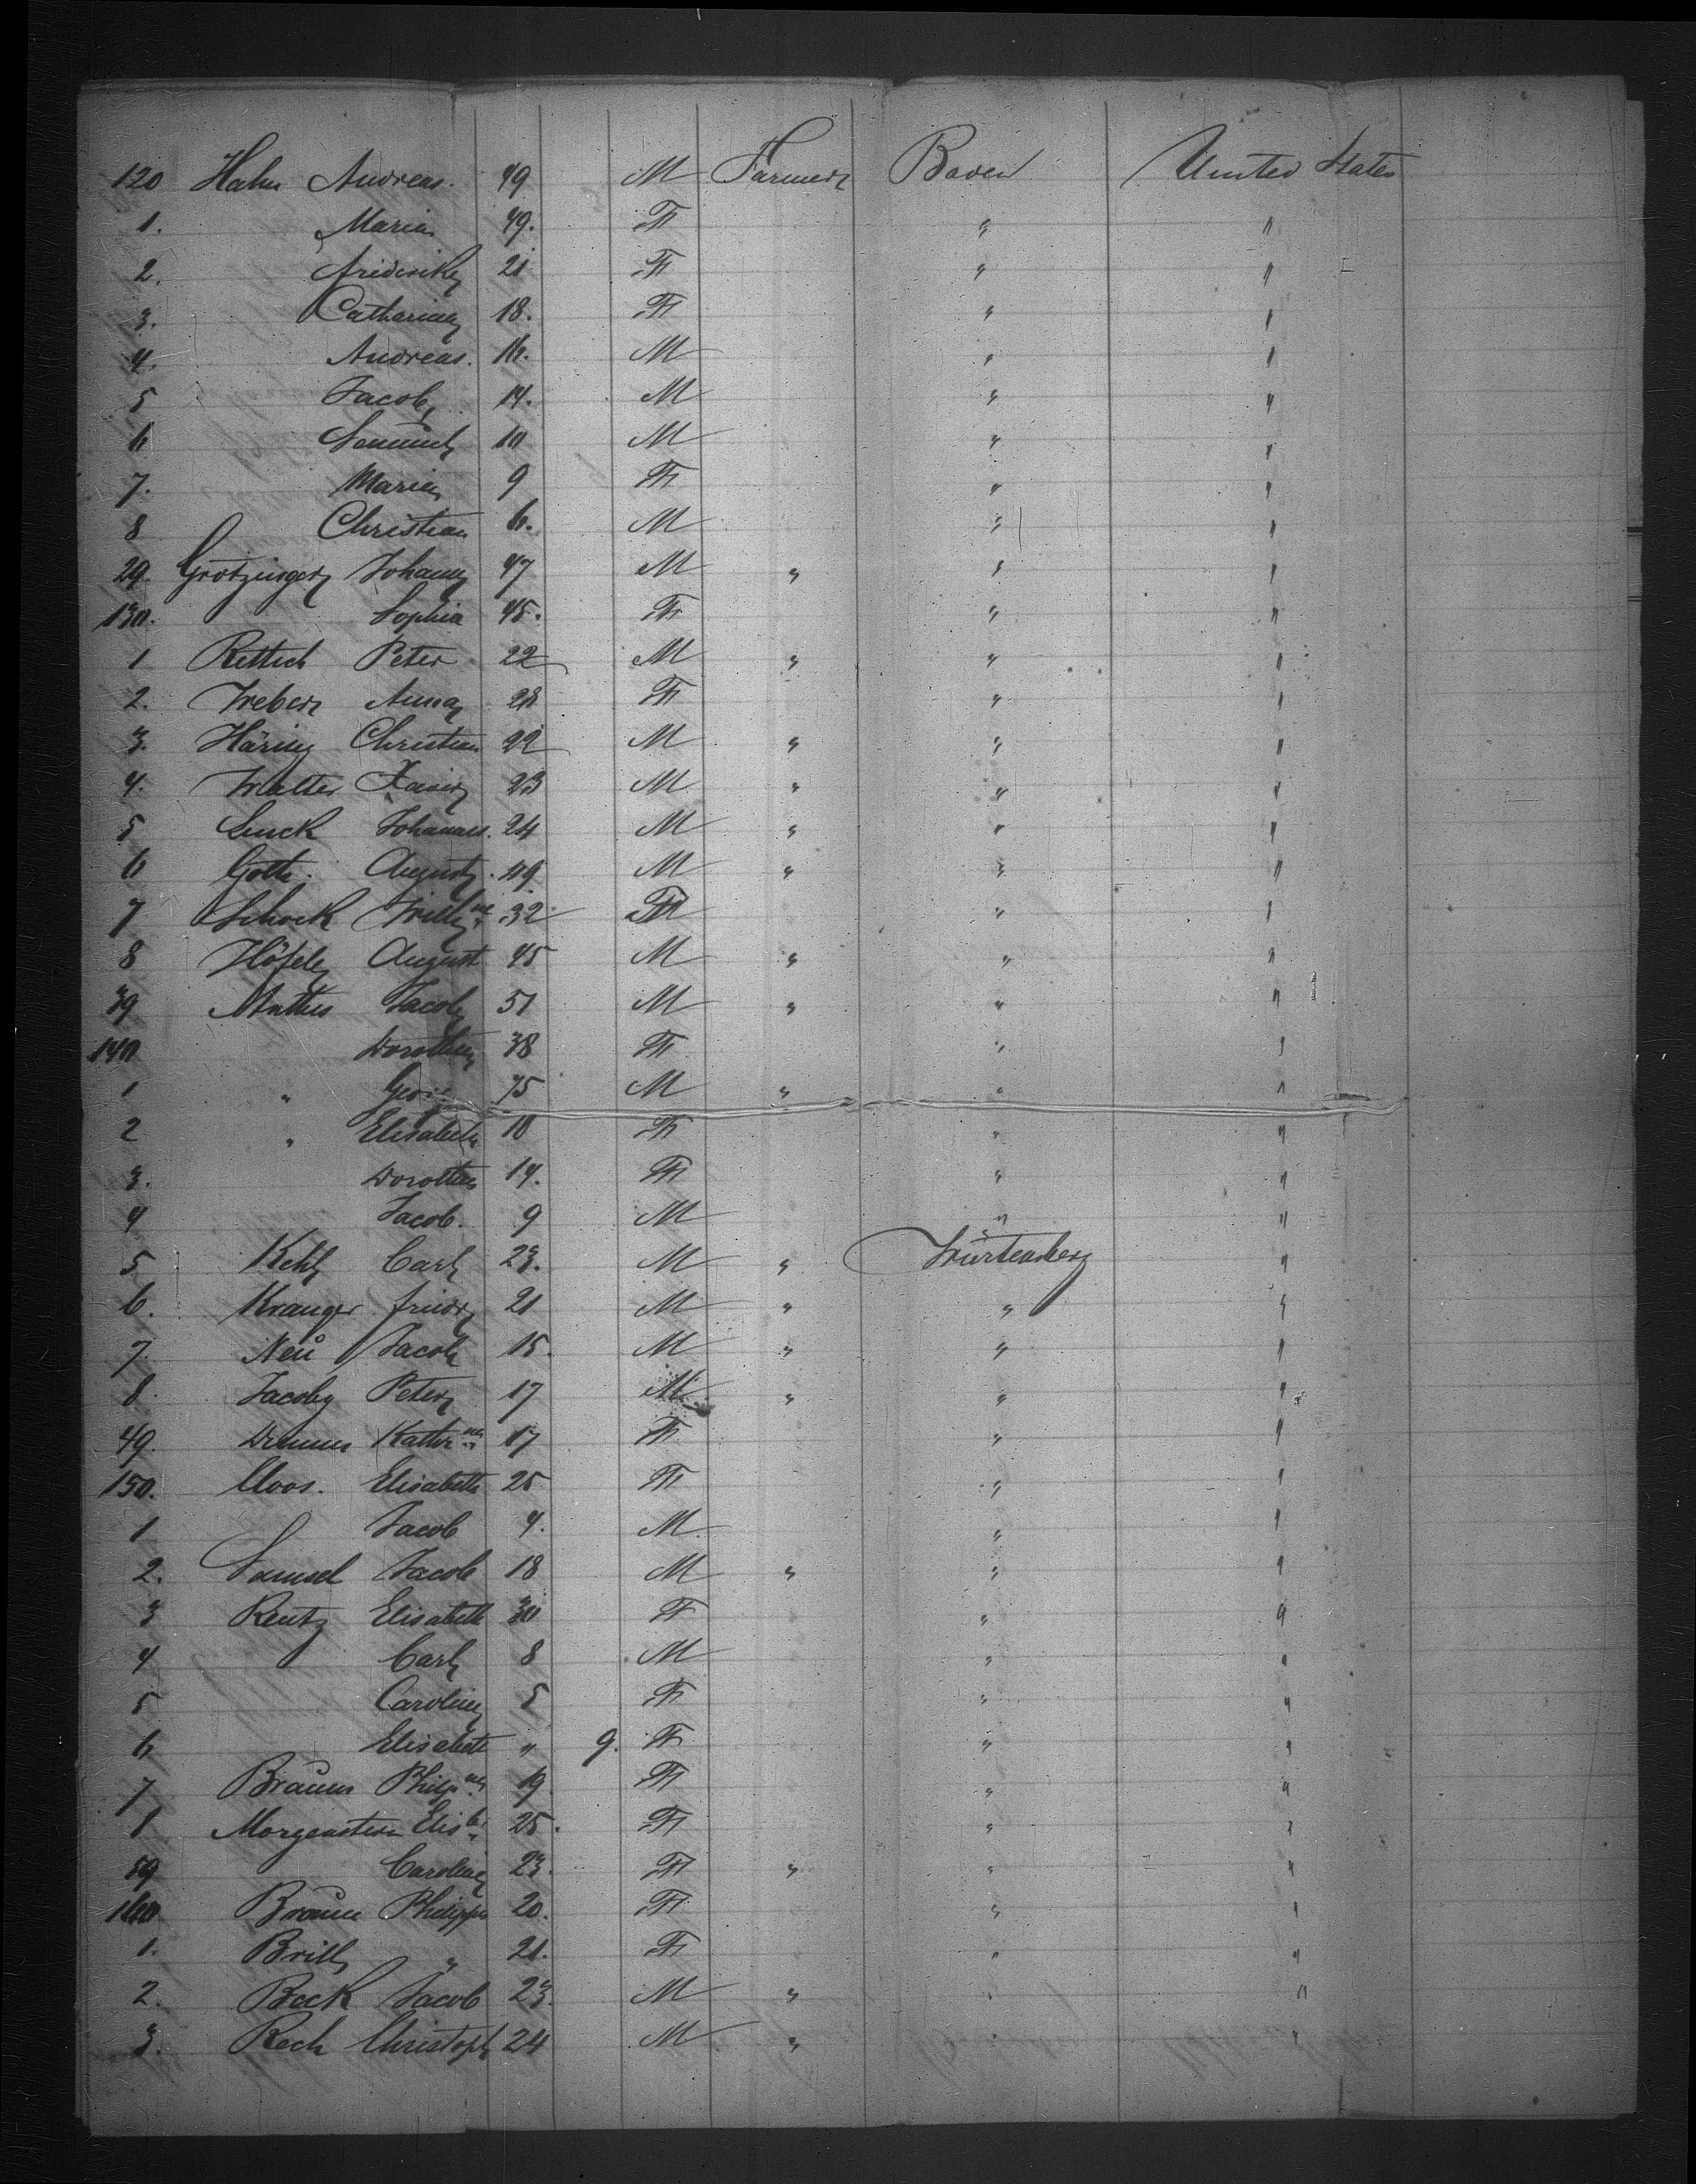 120 Hahn Andreas. 49 M Farmer Baden United States
1. Maria 49. F " "
2. Friderike 21 F " "
3. Catharina 18. F " "
4. Andreas. 16. M " "
5 Jacob 14. M " "
6 Samuel 10 M " "
7. Maria 9 F " "
8 Christian 6. M " "
29. Grötzinger Johann 47 M " " "
130. Sophia 45. F " "
1 Rettich Peter 22 M " " "
2. Weber Anna 28 F " "
3. Häring Christian 22 M " " "
4. Walter Xavier 23 M " " "
5 Luck Johannes. 24 M " " "
6 Goth. August 49 M " " "
7 Schock Willh ne 32 F " "
8 Höfele August 45 M " " "
39 Mathis Jacob 51 M " " "
140 Dorothea 38 F " "
1 " Georg 75 M " " "
2 " Elisabeth 10 F " "
3. Dorothea 14. F " "
4 Jacob. 9 M " "
5 Kehl Carl 23. M " Würtenberg "
6. Kranger Friedr 21 M " " "
7. Neu Jacob 15. M " " "
8. Jacoby Peter 17 M " " "
49. Kathr na 17 F " "
150. Cloos. Elisabeth 25 F " "
1 Jacob 4. M " "
2. Samsel Jacob 18 M " " "
3 Rentz Elisabeth 30 F " "
4 Carl 8 M " "
5 Caroline 5 F " "
6 Elisabeth " 9. F " "
7 Braun Philp na 19. F " "
8 Morgenstern Elis b 25. F " "
59 Caroline 23. F " " "
160 Braun Philippa 20. F " "
1. Brill " 21. F " "
2. Beck Jacob 23. M " " "
3. Rech Christoph 24 M " " "